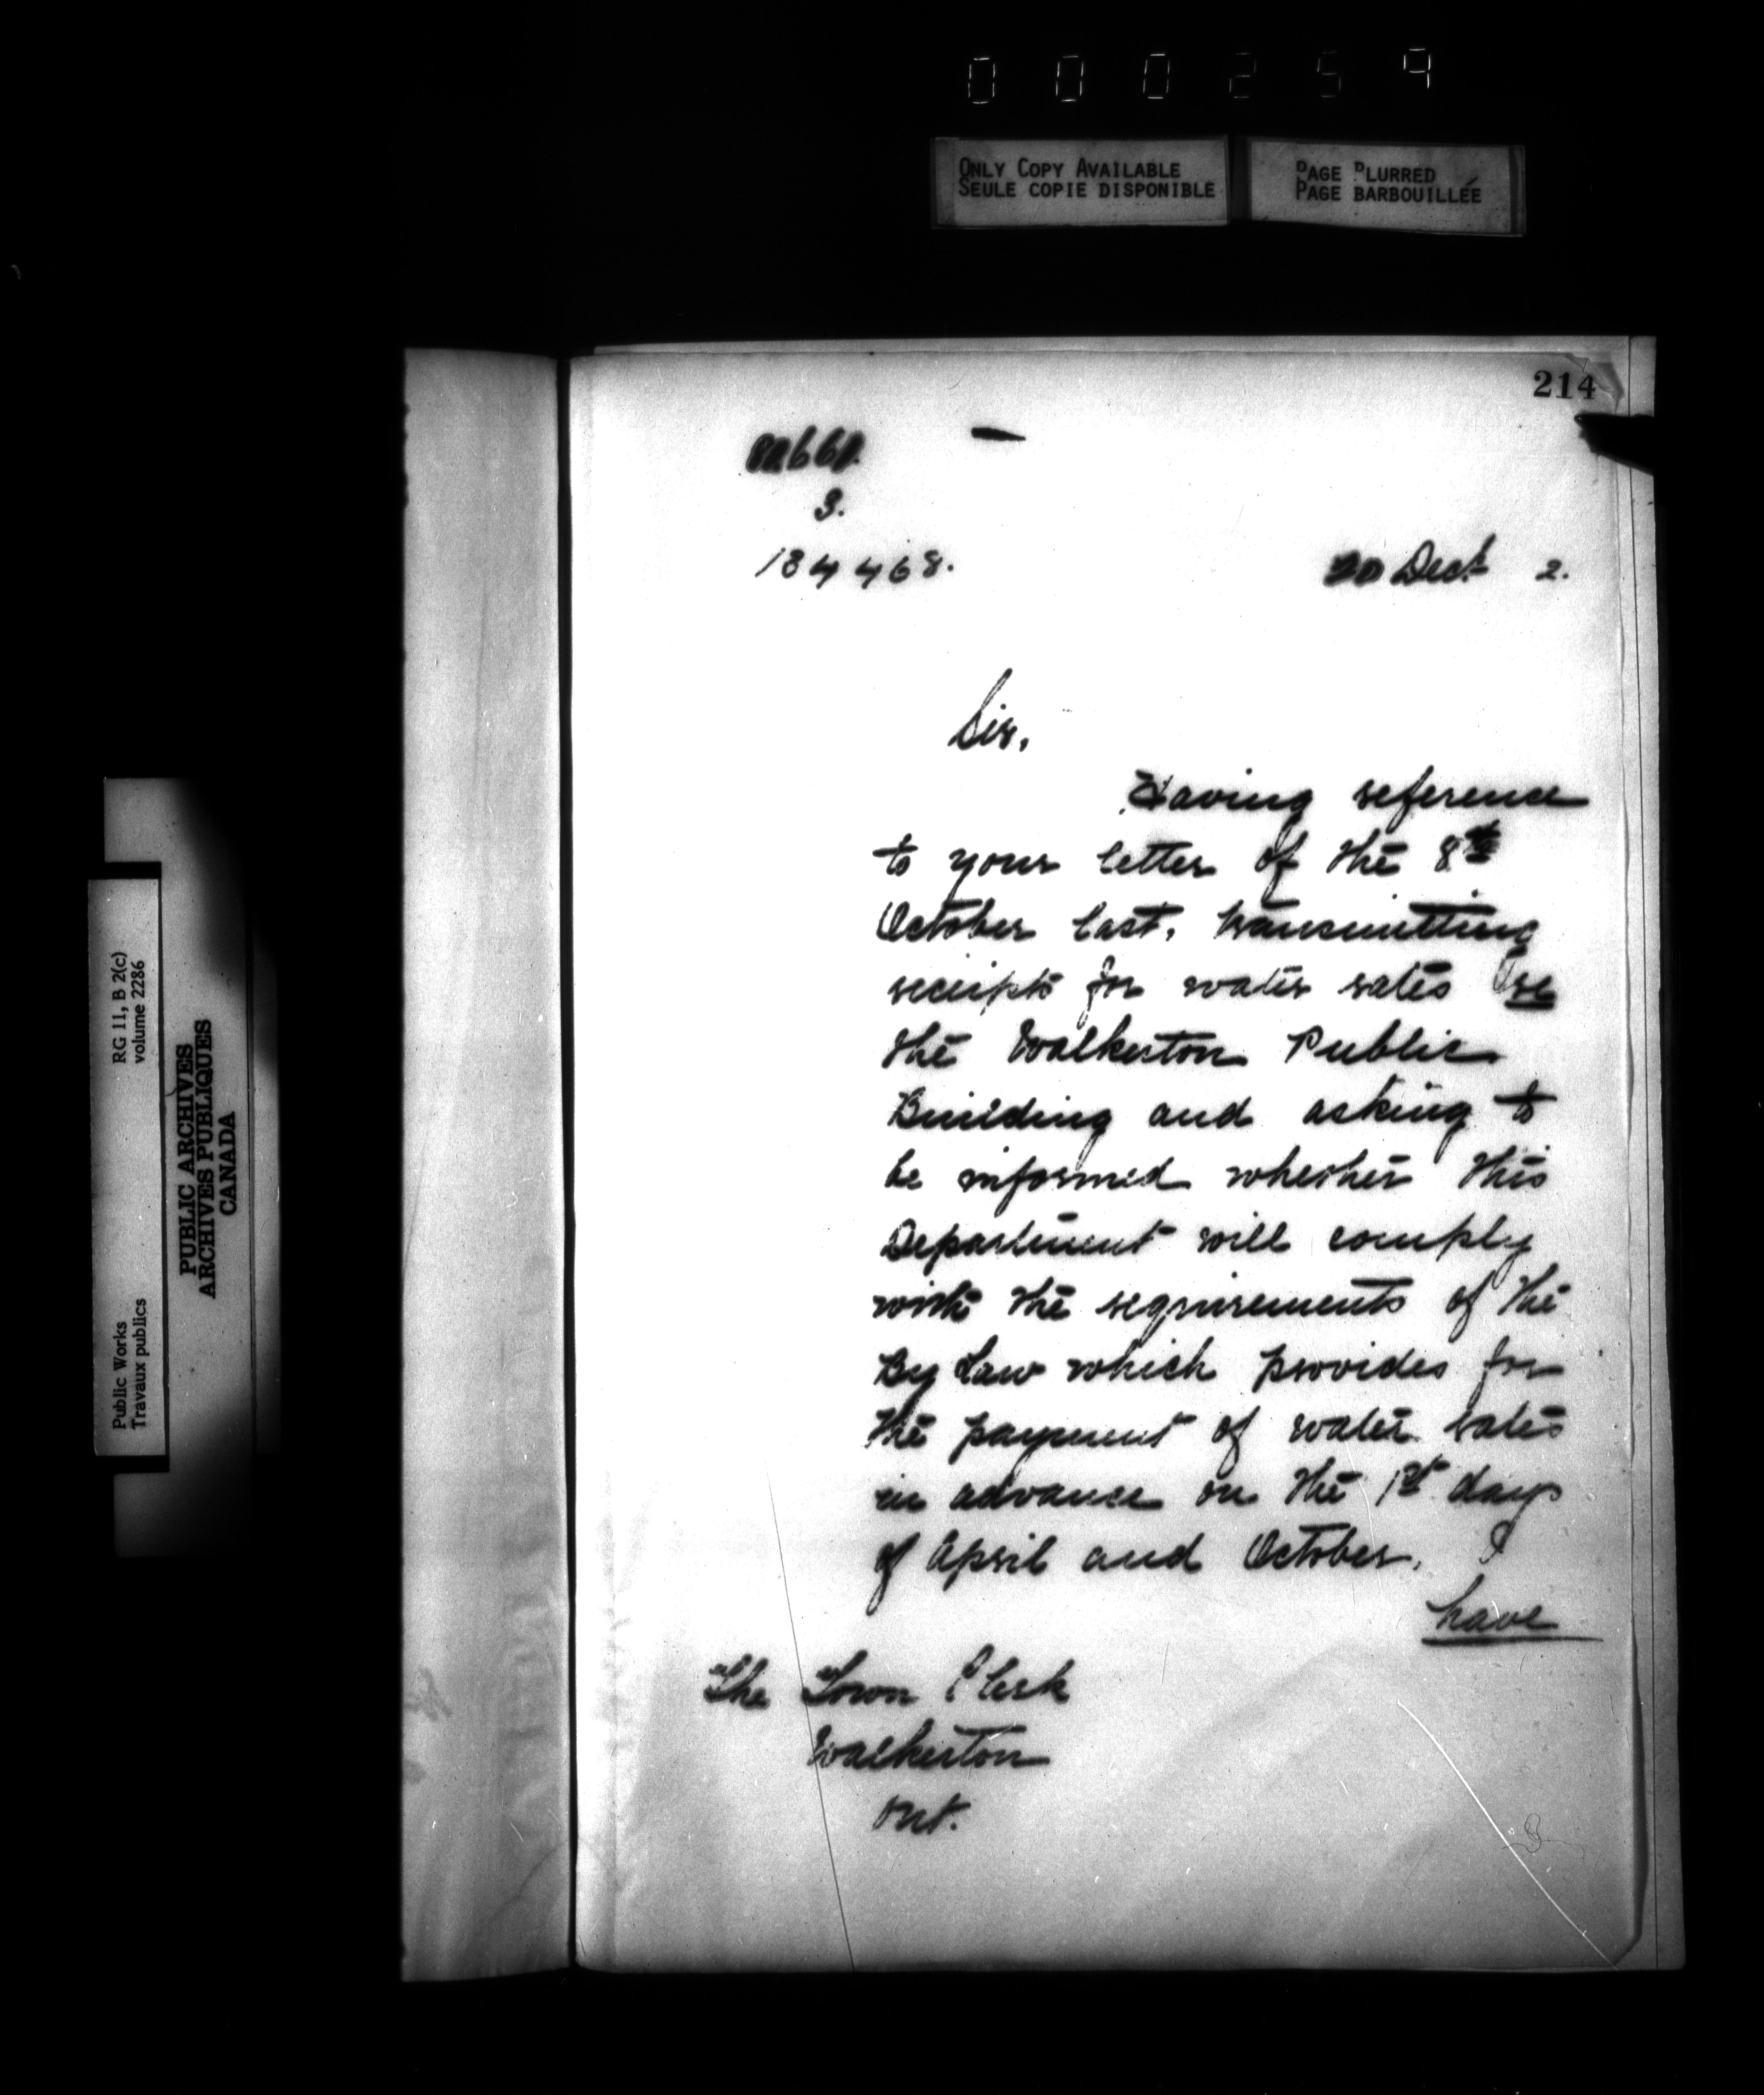 000259
ONLY COPY AVAILABLE
SEULE COPIE DISPONIBLE
PAGE BLURRED
PAGE BARBOUILLÉE
214
3.
134468.
20 Dec.r 2.
Sir,
Having reference
to your letter of the 8th
October last, transmitting
receipts for water rates re
the Walkerton Public
Building and asking to
be informed whether this
Department will comply
with the requirements of the
By law which provides for
the payment of water rates
in advance on the 1st days
of April and October. I
have
The Town Clerk
Walkerton
Ont.
Public Works
Travaux publics
RG 11, B 2(c)
volume 2286
PUBLIC ARCHIVES
ARCHIVES PUBLIQUES
CANADA